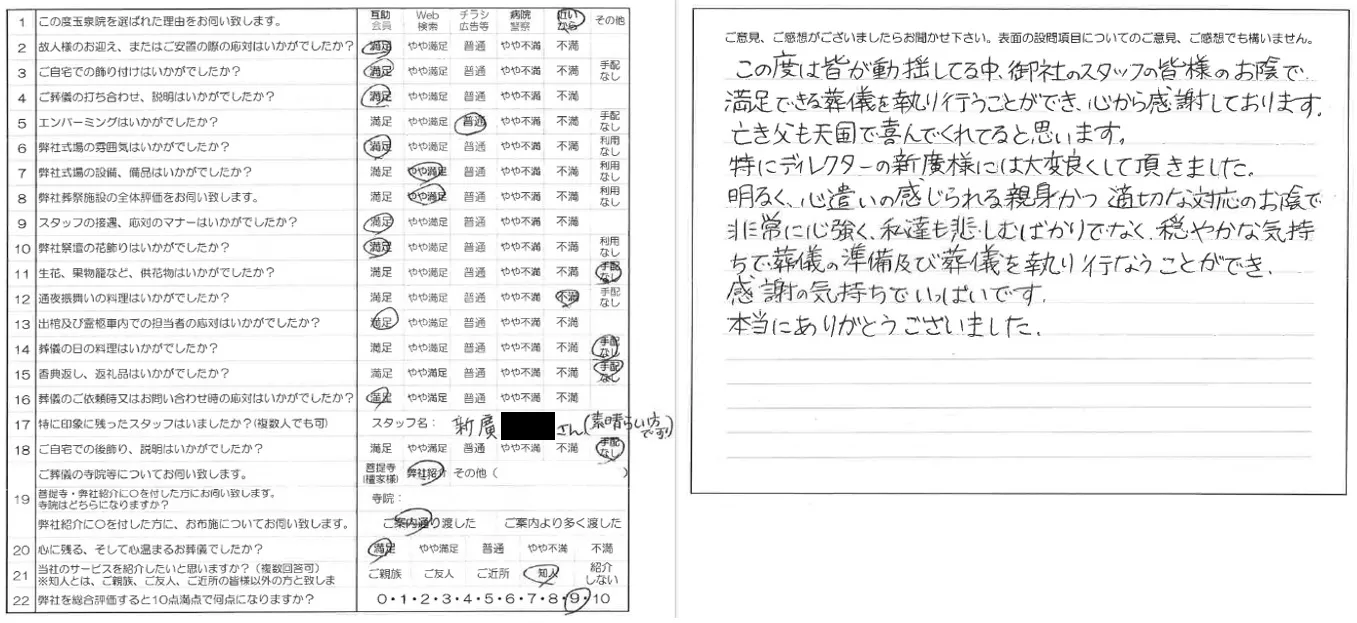 1 この度玉泉院を選ばれた理由をお伺い致します。 互助会員 Web検索 チラシ広告等 病院警察 近いから その他
2 故人様のお迎え、またはご安置の際の応対はいかがでしたか？ 満足 やや満足 普通 やや不満 不満
3 ご自宅での飾り付けはいかがでしたか？ 満足 やや満足 普通 やや不満 不満 手配なし
4 ご葬儀の打ち合わせ、説明はいかがでしたか？ 満足 やや満足 普通 やや不満 不満
5 エンバーミングはいかがでしたか？ 満足 やや満足 普通 やや不満 不満 手配なし
6 弊社式場の雰囲気はいかがでしたか？ 満足 やや満足 普通 やや不満 不満 利用なし
7 弊社式場の設備、備品はいかがでしたか？ 満足 やや満足 普通 やや不満 不満 利用なし
8 弊社葬祭施設の全体評価をお伺い致します。 満足 やや満足 普通 やや不満 不満 利用なし
9 スタッフの接遇、応対のマナーはいかがでしたか？ 満足 やや満足 普通 やや不満 不満
10 弊社祭壇の花飾りはいかがでしたか？ 満足 やや満足 普通 やや不満 不満 利用なし
11 生花、果物籠など、供花物はいかがでしたか？ 満足 やや満足 普通 やや不満 不満 手配なし
12 通夜振舞いの料理はいかがでしたか？ 満足 やや満足 普通 やや不満 不満 手配なし
13 出棺及び霊柩車内での担当者の応対はいかがでしたか？ 満足 やや満足 普通 やや不満 不満
14 葬儀の日の料理はいかがでしたか？ 満足 やや満足 普通 やや不満 不満 手配なし
15 香典返し、返礼品はいかがでしたか？ 満足 やや満足 普通 やや不満 不満 手配なし
16 葬儀のご依頼時又はお問い合わせ時の応対はいかがでしたか？ 満足 やや満足 普通 やや不満 不満
17 特に印象に残ったスタッフはいましたか？(複数人でも可) スタッフ名： 新廣 さん(素晴らしい方です)
18 ご自宅での後飾り、説明はいかがでしたか？ 満足 やや満足 普通 やや不満 不満 手配なし
ご葬儀の寺院等についてお伺い致します。 菩提寺(檀家様) 弊社紹介 その他（ ）
19 菩提寺・弊社紹介に〇を付した方にお伺い致します。
寺院はどちらになりますか？ 寺院：
弊社紹介に〇を付した方に、お布施についてお伺い致します。 ご案内通り渡した ご案内より多く渡した
20 心に残る、そして心温まるお葬儀でしたか？ 満足 やや満足 普通 やや不満 不満
21 当社のサービスを紹介したいと思いますか？（複数回答可）
※知人とは、ご親族、ご友人、ご近所の皆様以外の方と致しま ご親族 ご友人 ご近所 知人 紹介しない
22 弊社を総合評価すると10点満点で何点になりますか？ 0・1・2・3・4・5・6・7・8・9・10
ご意見、ご感想がございましたらお聞かせ下さい。表面の設問項目についてのご意見、ご感想でも構いません。
この度は皆が動揺してる中、御社のスタッフの皆様のお陰で
満足できる葬儀を執り行うことができ、心から感謝しております。
亡き父も天国で喜んでくれてると思います。
特にディレクターの新廣様には大変良くして頂きました。
明るく、心遣いの感じられる親身かつ適切な対応のお陰で
非常に心強く、私達も悲しむばかりでなく、穏やかな気持
ちで葬儀の準備及び葬儀を執り行なうことができ、
感謝の気持ちでいっぱいです。
本当にありがとうございました。